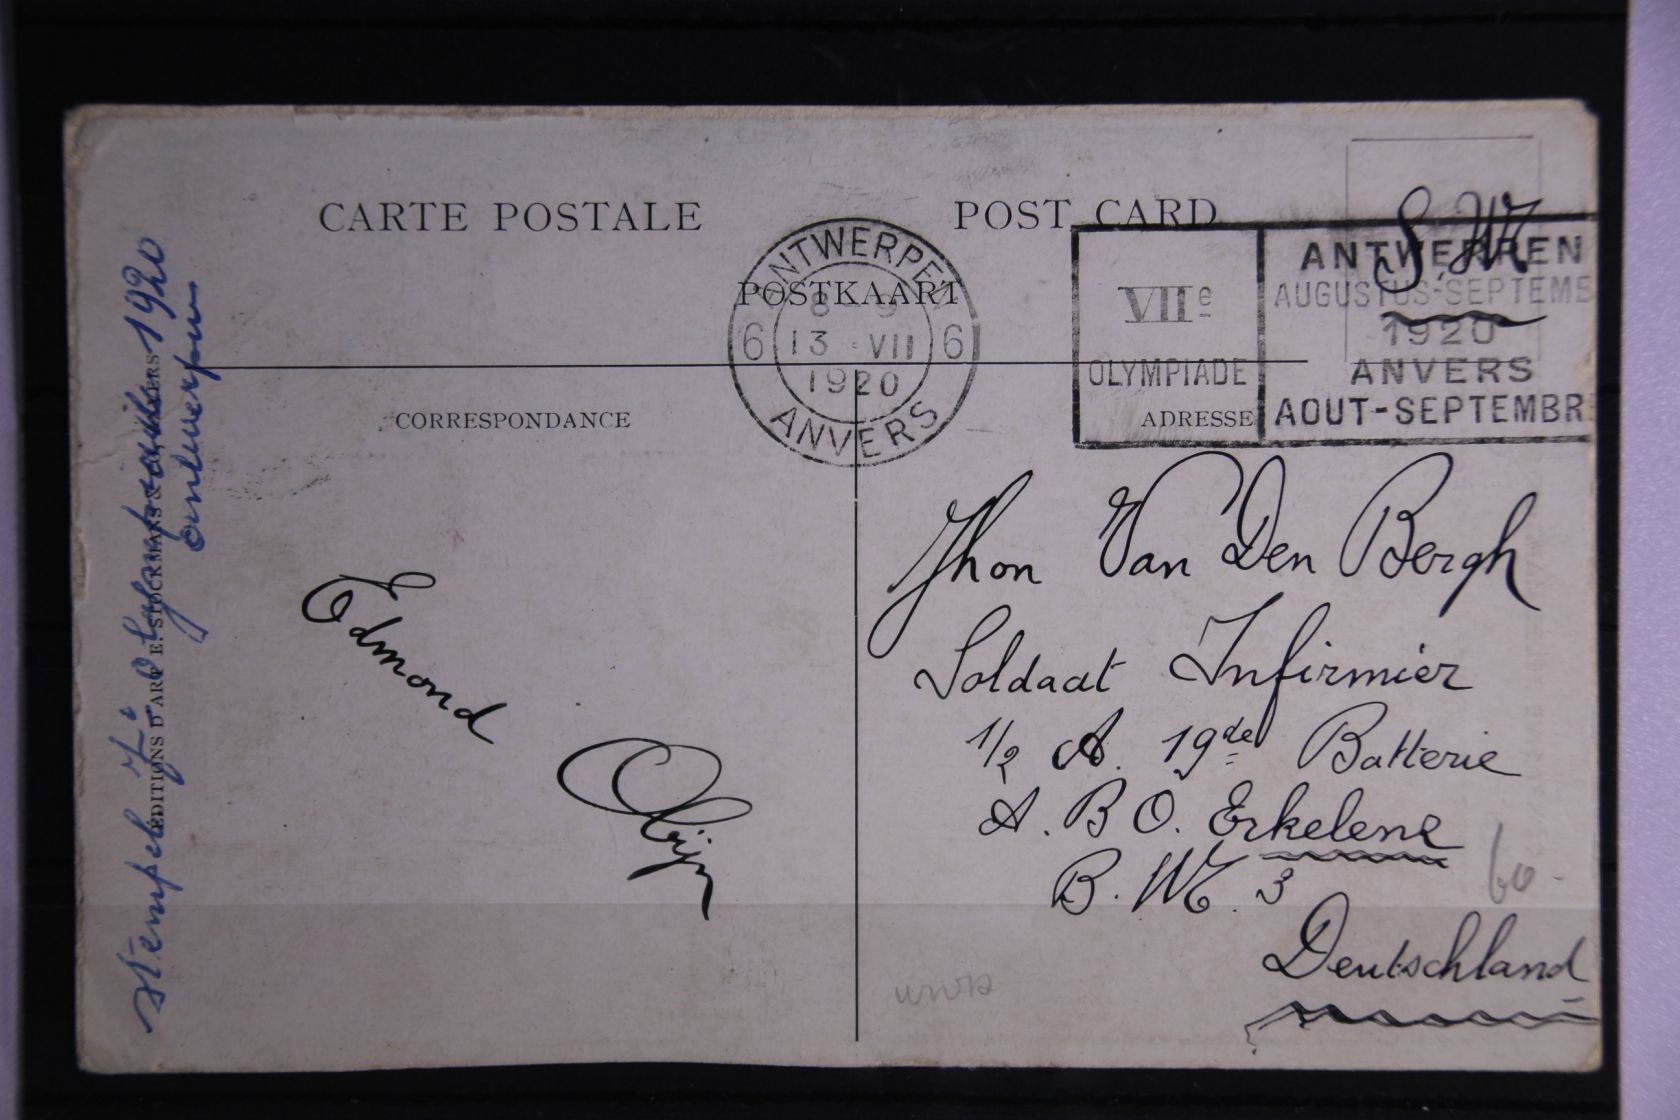 CARTE POSTALE
POST CARD
POSTKAART
CORRESPONDANCE
ADRESSE
ANTWERPEN
8 9
6 13 VII 6
1920
ANVERS
VIIe
OLYMPIADE
ANTWERPEN
AUGUSTUS-SEPTEMB
1920
ANVERS
AOUT-SEPTEMBRE
S.M.
Edmond
Jhon Van Den Bergh
Soldaat Infirmier
1/2 A. 19de Batterie
A. B O. Erkelenz
B. M. 3
Deutschland
60.-
ÉDITIONS D'ART E. STOCKMANS & ANVERS
Stempel 7e 1920
Antwerpen